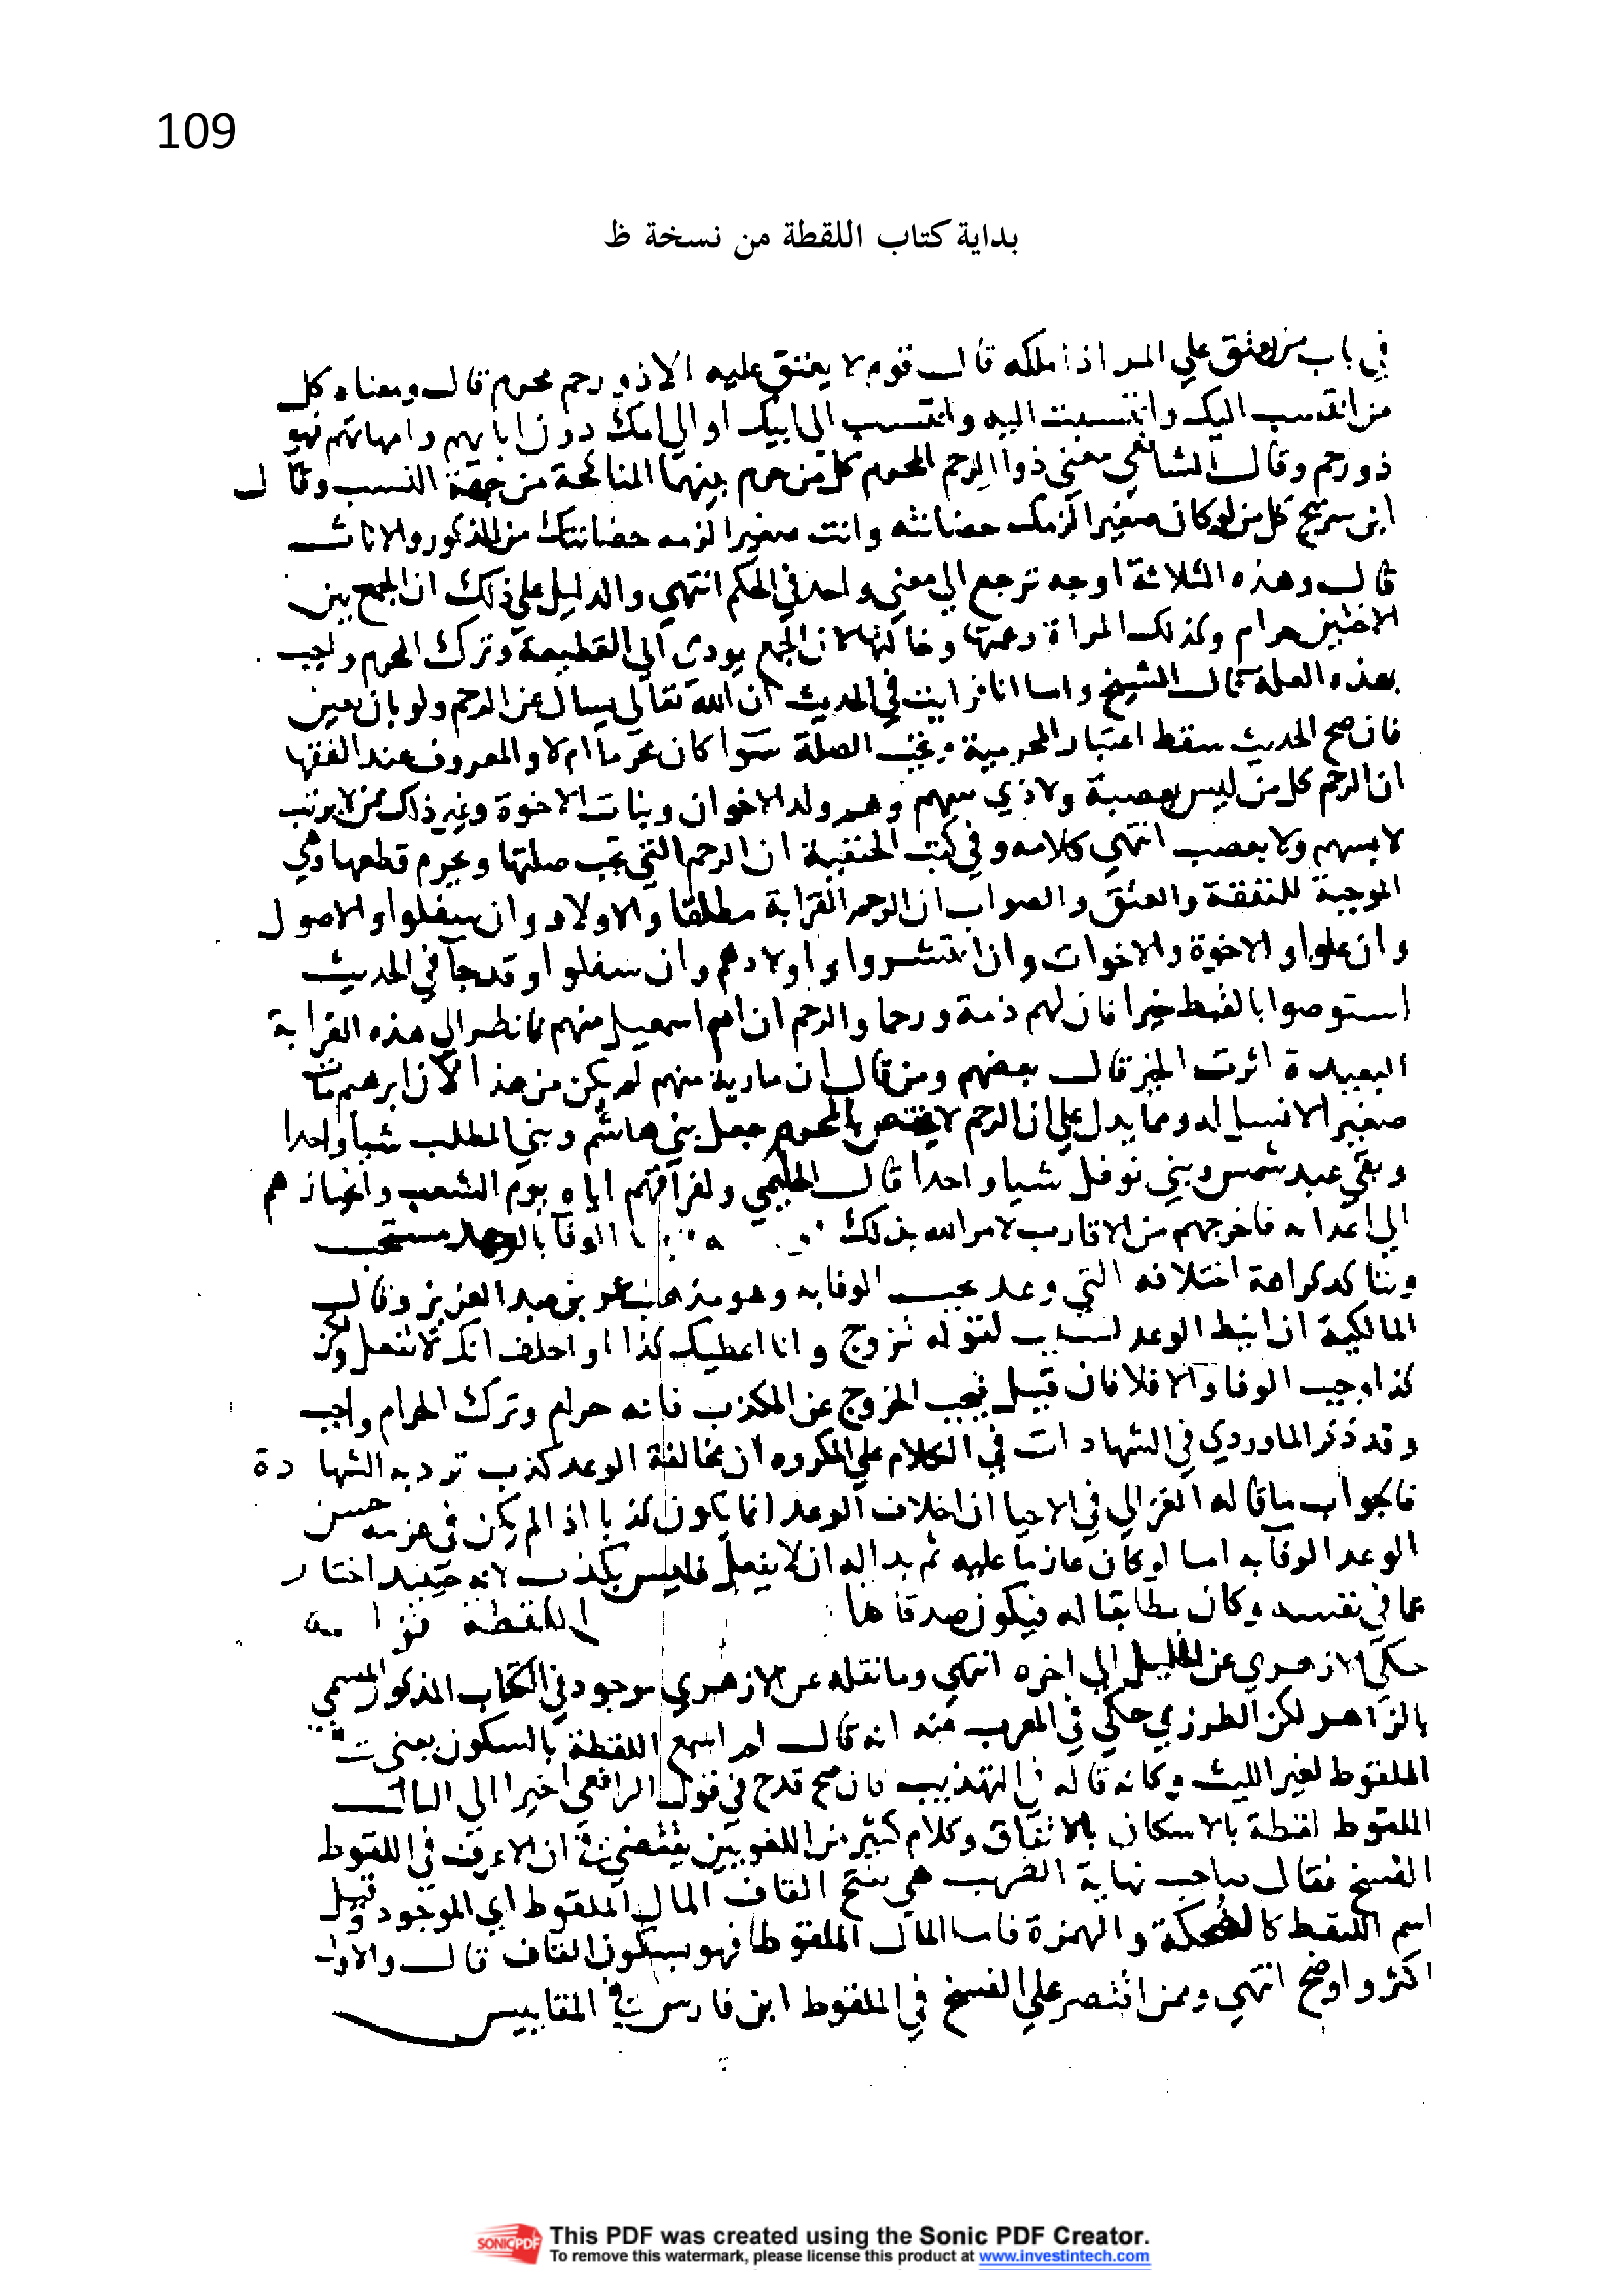 109
بداية كتاب اللقطة من نسخة ظ
في باب من يعتق علي المر اذا ملكه قال قوم لا يعتق عليه الا ذو رحم محرم قال ومعناه كل
من انتسب اليك وانتسبت اليه وانتسب الي ابيك او الي امك دون ابايهم وامهاتهم فهو
ذو رحم وقال الشافعي معني ذوا الرحم المحرم كل من حرم بينهما المناكحة من جهة النسب وقال
ابن سريج كل من لو كان صغيرا لزمك حضانته وانت صغيرا لزمه حضانتك من الذكور والاناث
قال وهذه الثلاثة اوجه ترجع الي معني واحد في الحكم انتهي والدليل علي ذلك ان الجمع بين
الاختين حرام وكذلك المراة وعمتها وخالتها لان الجمع يودي الي القطيعة وترك المحرم واجب
بهذه العلة قال الشيخ واما انا فرايت في الحديث ان الله تعالي يسال عن الرحم ولو باربعين
فان صح الحديث سقط اعتبار المحرمية وتجب الصلة سوا كان محرما ام لا والمعروف عند الفقها
ان الرحم كل من ليس بعصبة ولا ذي سهم وهم ولد الاخوان وبنات الاخوة وغير ذلك ممن لا يرث
لا بسهم ولا بعصب انتهي كلامه وفي كتب الحنفية ان الرحم التي تجب صلتها ويحرم قطعها هي
الموجبة للنفقة والعتق والصواب ان الرحم القرابة مطلقا والاولاد وان سفلوا والاصول
وان علوا والاخوة والاخوات وان انتشروا واولادهم وان سفلوا وقد جا في الحديث
استوصوا بالقبط خيرا فان لهم ذمة ورحما والرحم ان ام اسمعيل منهم فانظر الي هذه القرابة
البعيدة اثرت الخبر قال بعضهم ومن قال ان مارية منهم لم يكن من هذا لان ابرهيم مات
صغيرا لا نسل له ومما يدل علي ان الرحم لا يختص بالمحرم جعل بني هاشم وبني المطلب شيا واحدا
وبقي عبد شمس وبني نوفل شيا واحدا قال الحليمي ولفراقهم اياه يوم الشعب وانحيازهم
الي اعدايه فاخرجهم من الاقارب لامر الله بذلك الوفا بالوعد مستحب
وتتاكد كراهة اختلافه التي وعد يجب الوفا به وهو مذهب عمر بن عبد العزيز وقال
المالكية ان ارتبط الوعد لسبب لقوله تزوج وانا اعطيك كذا او احلف انك لا تفعل ولك
كذا وجب الوفا والا فلا فان قيل فيجب الخروج عن الكذب فانه حرام وترك الحرام واجب
وقد ذكر الماوردي في الشهادات في الكلام علي المكروه ان مخالفة الوعد كذب ترد به الشهادة
فالجواب ما قاله الغزالي في الاحيا ان اخلاف الوعد انما يكون كذبا اذا لم يكن في عزمه حسن
الوعد الوفا به اما لو كان عازما عليه ثم بدا له ان لا يفعل فليس بكذب لانه حينيذ اخبار
عما في نفسه وكان مطابقا له فيكون صدقا ها اللقطة
حكي الازهري عن الخليل الي اخره انتهي وما نقله عن الازهري موجود في الكتاب المذكور المسمي
بالزاهر لكن المطرزي حكي في المغرب عنه انه قال لم اسمع اللقطة بالسكون بمعني
الملقوط لغير الليث وكانه قاله في التهذيب فان صح قدح في قول الرافعي اخيرا الي المال
الملقوط لقطة بالاسكان بالاتفاق وكلام كثير من اللغويين يقتضي ان الاعرف في اللقوط
الفتح فقال صاحب نهاية الغريب هي بفتح القاف المال الملقوط اي الموجود وقيل
اسم الملتقط كالضحكة والهمزة فاما المال الملقوط فهو بسكون القاف قال والاول
اكثر واوضح انتهي وممن اقتصر علي الفتح في الملقوط ابن فارس في المقاييس
This PDF was created using the Sonic PDF Creator.
To remove this watermark, please license this product at www.investintech.com